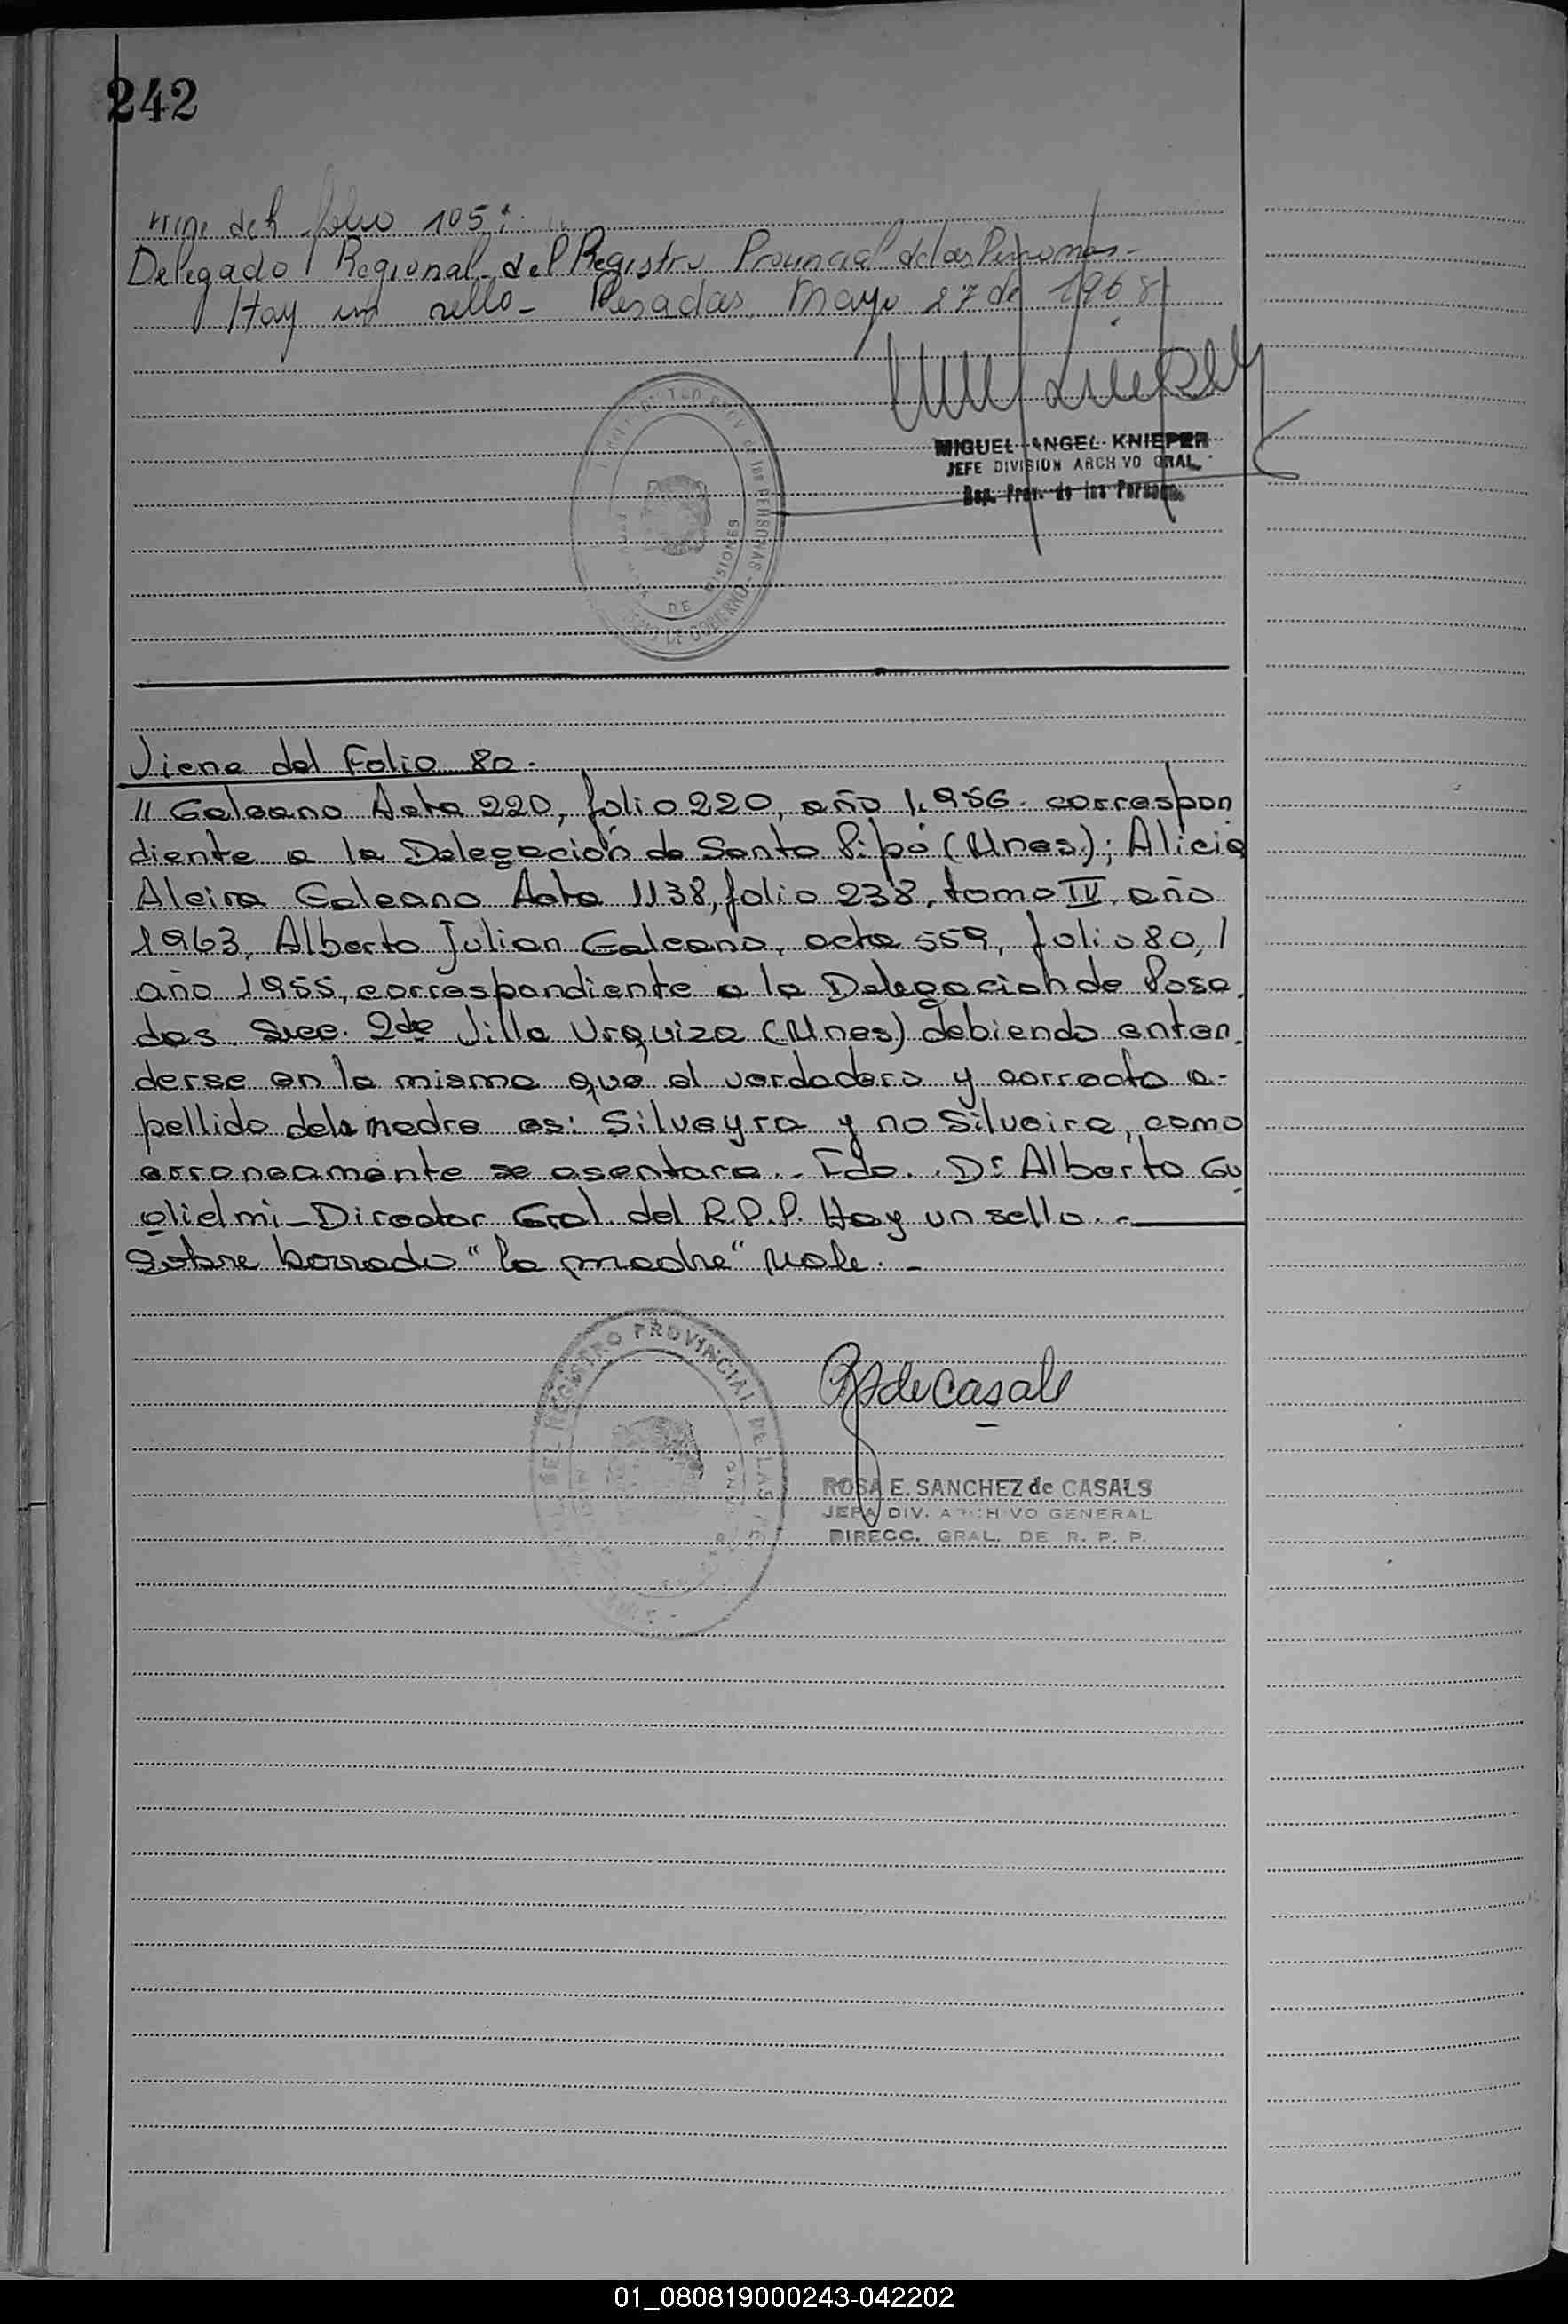 242
Viene del folio 105:
Delegado Regional del Registro Provincial de las Personas-
Hay un sello- Posadas, Mayo 27 de 1968
MIGUEL ANGEL KNIEPER
JEFE DIVISION ARCHIVO GRAL.
Rep. Prov. de las Personas
PERSONAS - GOBERNO
DE MISIONES
Viene del Folio 80.
// Galeano Acta 220, folio 220, año 1.956. correspon
diente a la Delegación de Santo Pipó (Mnes.); Alicia
Alcira Galeano Acta 1138, folio 238, tomo IV, año
1963, Alberto Julian Galeano, acta 559, folio 80, /
año 1955, correspondiente a la Delegación de Posa.
das. Secc. 2da Villa Urquiza (Mnes) debiendo enten.
derse en la misma que el verdadero y correcto a-
pellido de la madre es: Silveyra y no Silveira, como
erroneamente se asentara.- Fdo. Dr Alberto Gu
glielmi - Director Gral. del R.P.P. Hay un sello.-
Sobre borrado "la madre" Vale.-
DEL REGISTRO PROVINCIAL DE LAS PE
R S de Casals
ROSA E. SANCHEZ de CASALS
JEFA DIV. ARCHIVO GENERAL
DIRECC. GRAL. DE R. P. P.
01_080819000243-042202